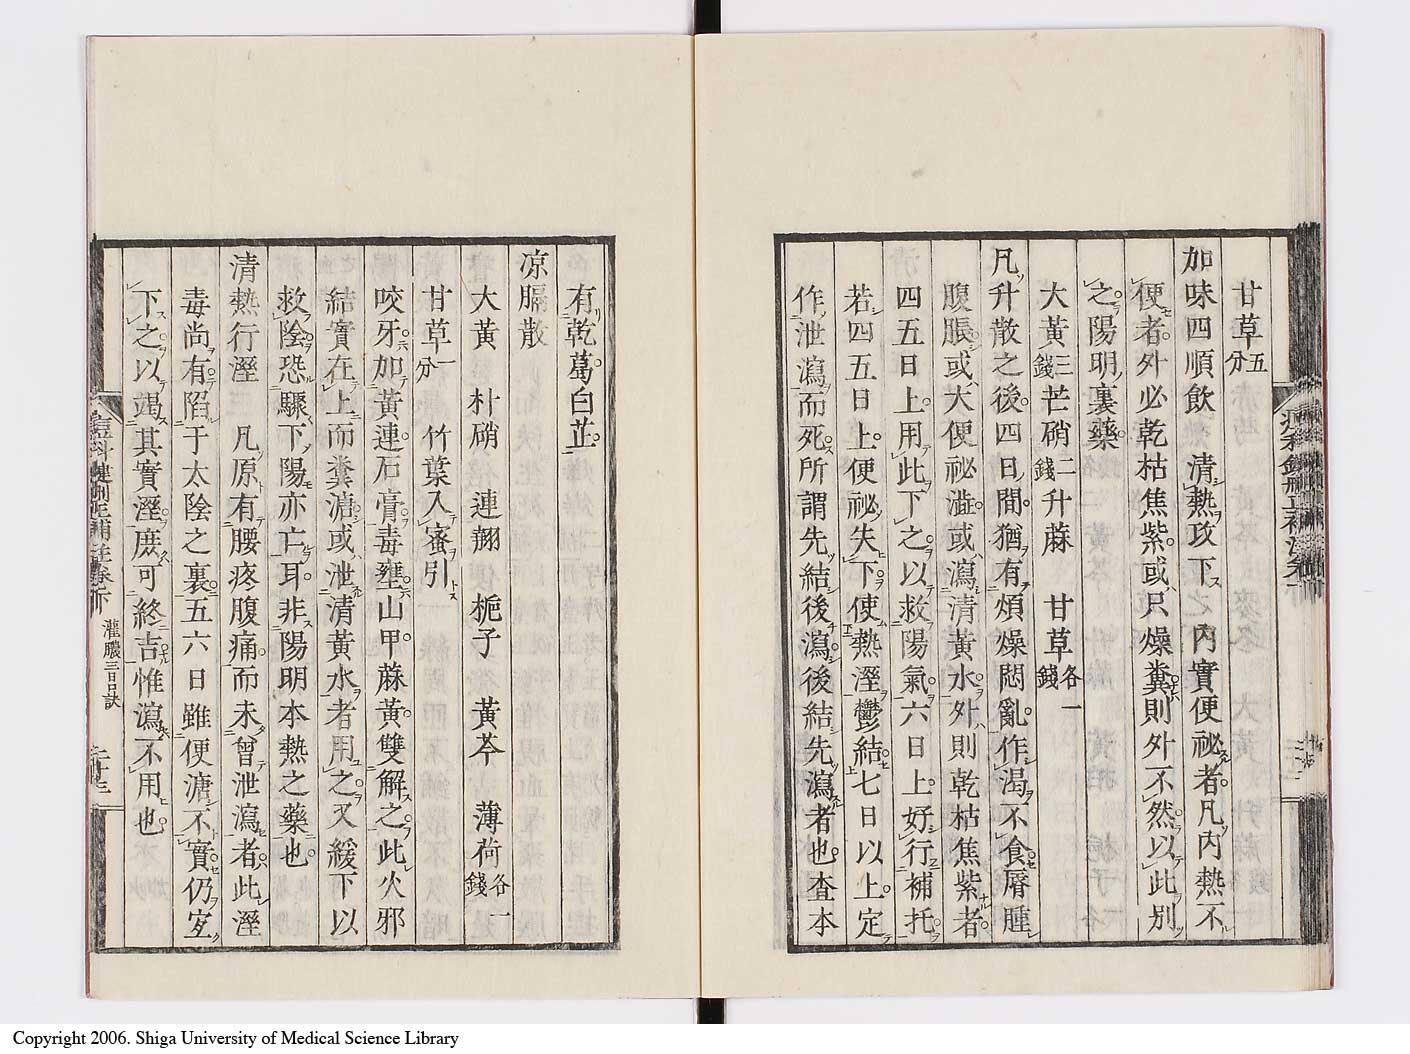 甘草五分
加味四順飲 清熱攻下之 內實便祕者凡內熱不
便者外必乾枯焦紫或只燥糞則外不然以此別
之陽明裏藥
大黃三錢 芒硝二錢 升蔴 甘草各一錢
凡升散之後四日間猶有煩燥悶亂作渴不食脣腫
腹脹或大便祕澁或瀉清黃水外則乾枯焦紫者
四五日上用此下之以救陽氣六日上好行補托
若四五日上便祕失下使熱溼鬱結七日以上定
作泄瀉而死所謂先結後瀉後結先瀉者也査本
有乾葛白芷
凉膈散
大黃 朴硝 連翹 梔子 黃芩 薄荷各一錢
甘草一分 竹葉入蜜引
咬牙加黃連石膏毒壅山甲蔴黃雙解之此火邪
結實在上而糞溏或泄清黃水者用之又緩下以
救陰恐驟下陽亦亡耳非陽明本熱之藥也
清熱行溼 凡原有腰疼腹痛而未曾泄瀉者此溼
毒尚有陷于太陰之裏五六日雖便溏不實仍宜
下之以竭其實溼庶可終吉惟瀉不用也
痘科鍵刪正補註卷下 灌膿三日訣 二十三
Copyright 2006. Shiga University of Medical Science Library